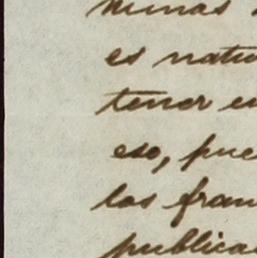 es natu
tener e
eso, pue
los fran
publica